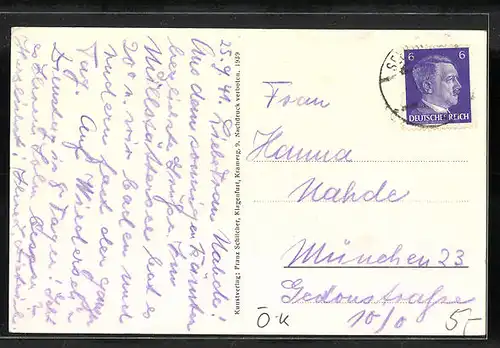 25.9.41. Liebe Frau Nahde!
Aus dem sonnigen Kärnten
herzliche Grüße. Am
Millstättersee hat es
20° u. wir baden und
rudern fast den ganzen
Tag. Auf Wiedersehen
Dienstag in 8 Tagen!
es
Kunstverlag: Franz Schilcher, Klagenfurt, Kramerg. 9. Nachdruck verboten. 1939
6 6
DEUTSCHES REICH
Frau
Hanna
Nahde
München 23
Gedonstraße
10/0
Ö-K
5-